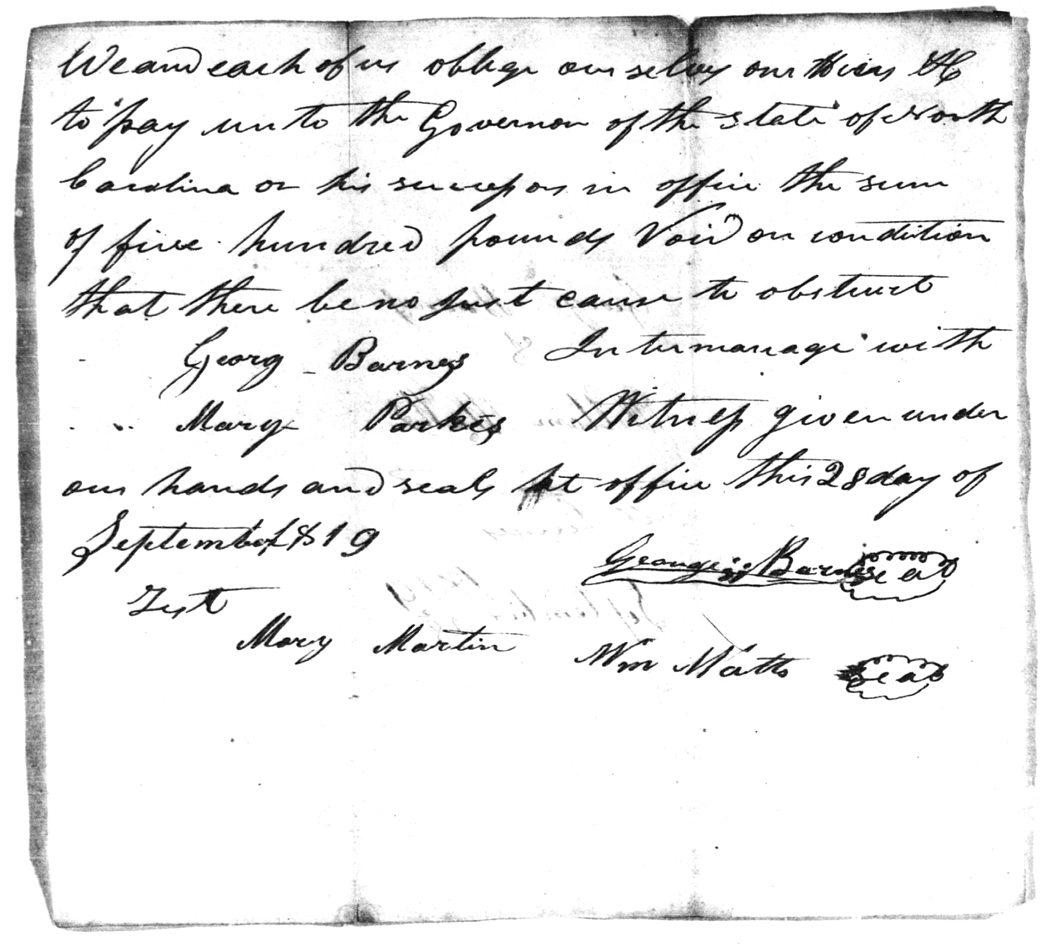 We and each of us oblege ourselvs our Heirs &C
to pay unto the Governor of the State of North
Carolina or his successors in office the sum
of five hundred pounds Void on condition
that there be no just cause to obstruct
Georg Barnes Intermarage with
Mary Parkes Witness given under
our hands and seals at office this 28 day of
September 1819
George Barnes Seal
Test
Mary Martin Wm Watts Seal